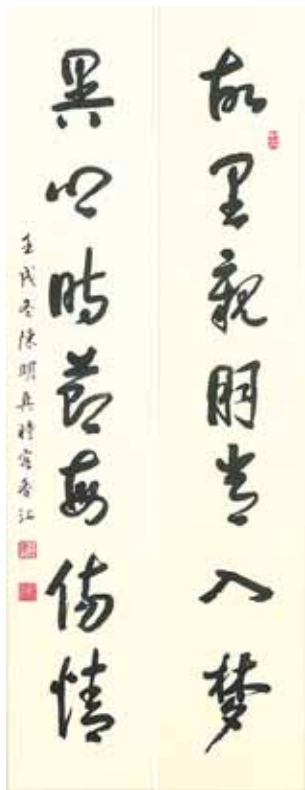 故里親朋常入梦
異鄉時節每傷情
壬戌冬陳明時客香江